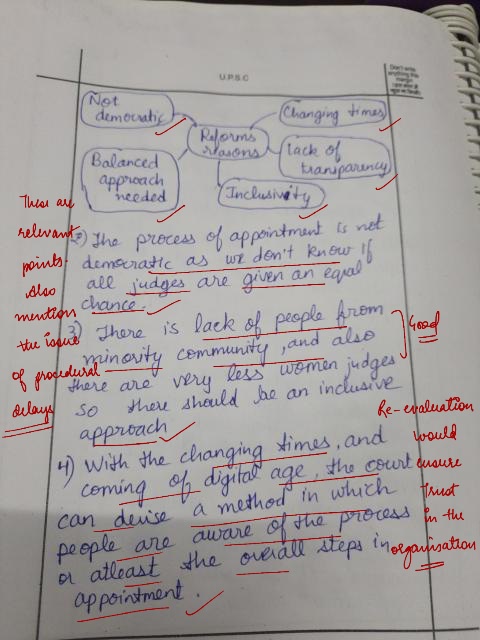 U.P.S.C
Don't write
anything this
margin
Not
democratic
Changing times
Reforms
reasons
Lack of
transparency
Balanced
approach
needed
Inclusivity
2) The process of appointment is not
democratic as we don't know if
all judges are given an equal
chance.
3) There is lack of people from
minority community, and also
there are very less women judges
so there should be an inclusive
approach
4) With the changing times, and
coming of digital age, the court
can devise a method in which
people are aware of the process
or atleast the overall steps in
appointment.
These are
relevant
points.
Also
mention
the issue
of procedural
delays
Good
Re-evaluation
would
ensure
trust
in the
organisation